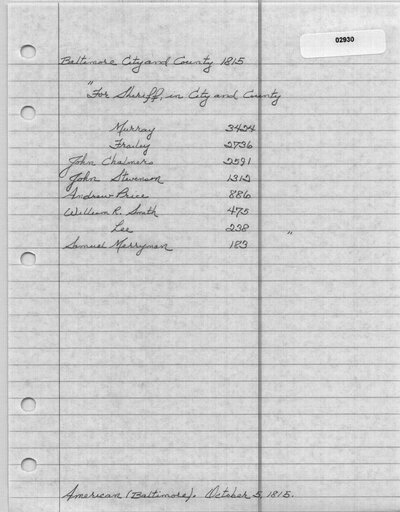 02930
Baltimore City and County 1815
"For Sheriff, in City and County
Murray 3424
Frailey 2736
John Chalmers 2591
John Stevenson 1312
Andrew Price 886
William R. Smith 475
Lee 238 "
Samuel Merryman 183
American (Baltimore). October 5, 1815.